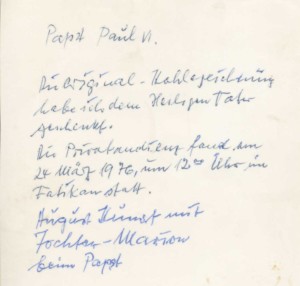 Papst Paul VI.
Die Original-Kohlezeichnung
habe ich dem Heiligen Vater
geschenkt.
Die Privataudienz fand am
24 März 1976, um 12 Uhr, im
Fatikan statt.
August mit
Tochter - Marion
beim Papst